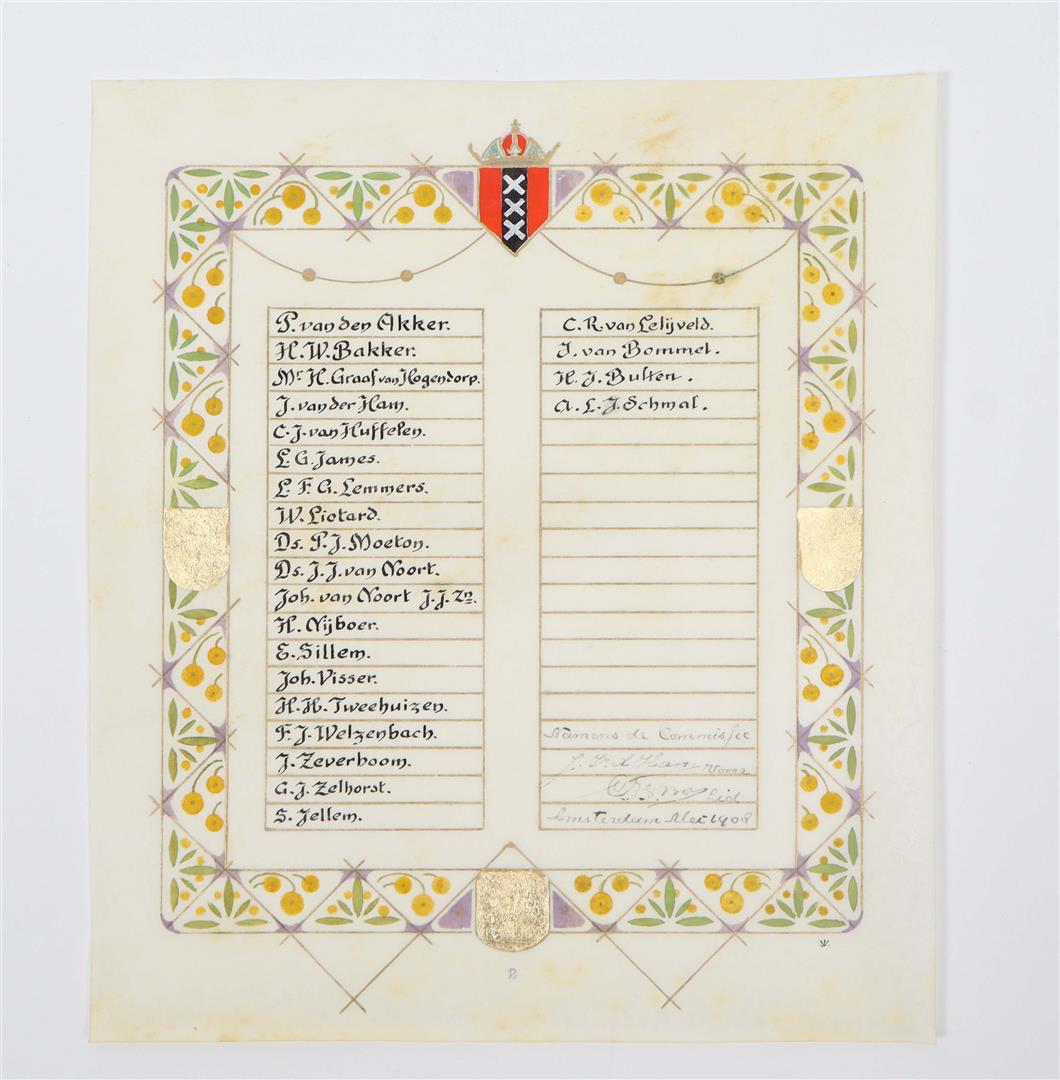 P. van den Akker.
H. W. Bakker.
Mr H. Graaf van Hogendorp.
J. van der Ham.
C. J. van Huffelen.
L. G. James.
L. F. G. Lemmers.
W. Liotard.
Ds. P. J. Moeton.
Ds. J. J. van Noort.
Joh. van Noort J. J. Zn.
H. Nijboer.
E. Sillem.
Joh. Visser.
H. H. Tweehuizen.
F. J. Welzenbach.
J. Zeverboom.
G. J. Zelhorst.
S. Jellem.
C. R. van Lelijveld.
J. van Bommel.
H. J. Bulten.
A. L. J. Schmal.
Namens de Commissie
Voorz
Lid
Amsterdam Mei 1908
8